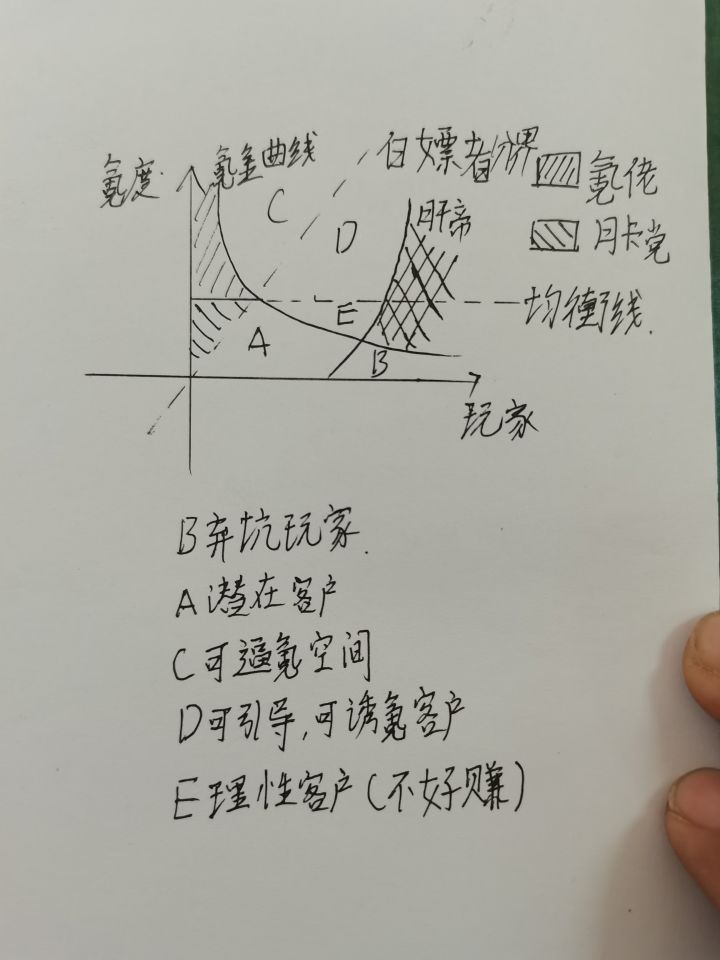 氪度
氪金曲线
白嫖者分界
氪佬
月卡党
C
D
肝帝
E
均衡线.
A
B
玩家
B弃坑玩家.
A潜在客户
C可逼氪空间
D可引导,可诱氪客户
E理性客户(不好赚)